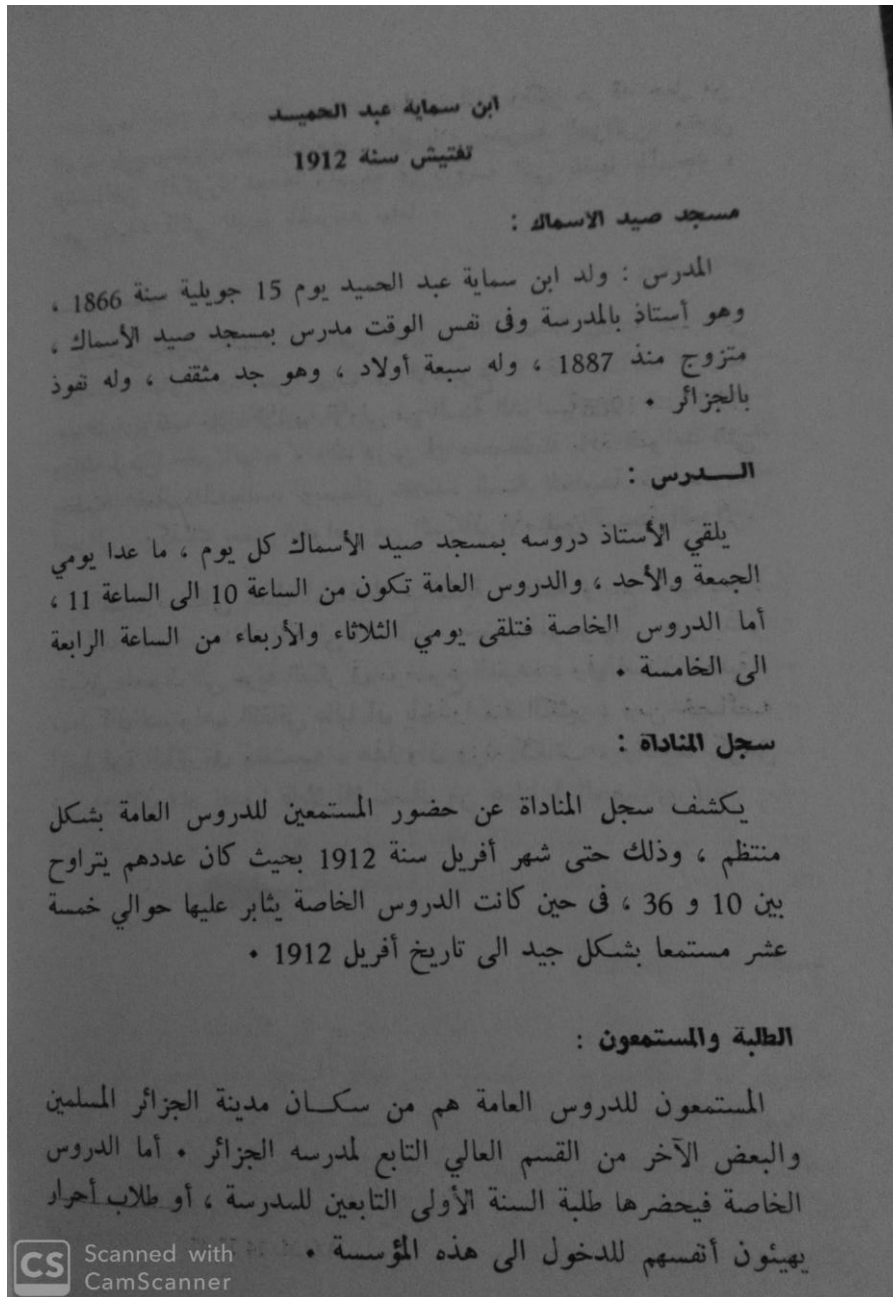 ابن سماية عبد الحميـــد
تفتيش سنة 1912
مسجد صيد الاسماك :
المدرس : ولد ابن سماية عبد الحميد يوم 15 جويلية سنة 1866 ،
وهو أستاذ بالمدرسة وفى نفس الوقت مدرس بمسجد صيد الأسماك ،
متزوج منذ 1887 ، وله سبعة أولاد ، وهو جد مثقف ، وله نفوذ
بالجزائر •
الــــدرس :
يلقي الأستاذ دروسه بمسجد صيد الأسماك كل يوم ، ما عدا يومي
الجمعة والأحد ، والدروس العامة تكون من الساعة 10 الى الساعة 11 ،
أما الدروس الخاصة فتلقى يومي الثلاثاء والأربعاء من الساعة الرابعة
الى الخامسة •
سجل المناداة :
يكشف سجل المناداة عن حضور المستمعين للدروس العامة بشكل
منتظم ، وذلك حتى شهر أفريل سنة 1912 بحيث كان عددهم يتراوح
بين 10 و 36 ، فى حين كانت الدروس الخاصة يثابر عليها حوالي خمسة
عشر مستمعا بشكل جيد الى تاريخ أفريل 1912 •
الطلبة والمستمعون :
المستمعون للدروس العامة هم من سكــان مدينة الجزائر المسلمين
والبعض الآخر من القسم العالي التابع لمدرسه الجزائر • أما الدروس
الخاصة فيحضرها طلبة السنة الأولى التابعين للمدرسة ، أو طلاب أحرار
يهيئون أنفسهم للدخول الى هذه المؤسسة •
CS Scanned with
CamScanner